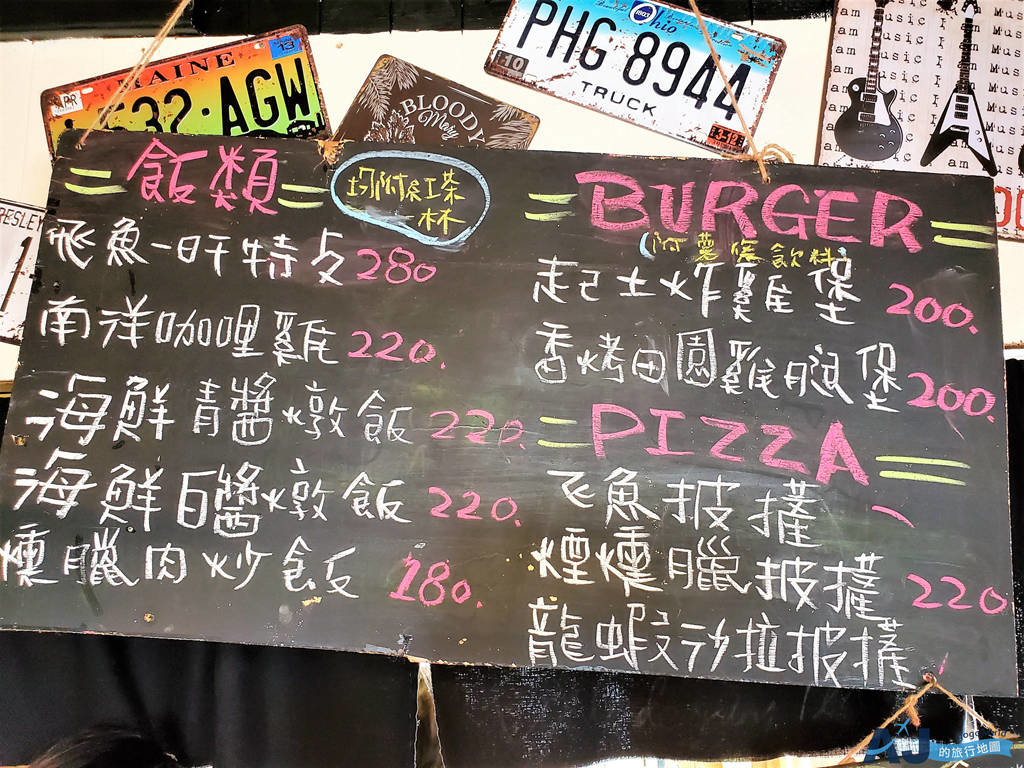 MAINE
13
PR
532·AGW
BLOODY
Mary
Ohio
10
PHG 8944
TRUCK
PRESLEY
1
= 飯類 =
均附紅茶
一杯
飛魚一旰特攵 280
南洋咖哩雞 220.
海鮮青醬燉飯 220.
海鮮白醬燉飯 220.
燻臘肉炒飯 180.
= BURGER =
(附薯條飲料)
起士炸雞堡 200.
香烤田園雞腿堡 200.
= PIZZA =
飞魚披薩
煙燻臘披薩 220
龍蝦沙拉披薩
AJ
的旅行地圖